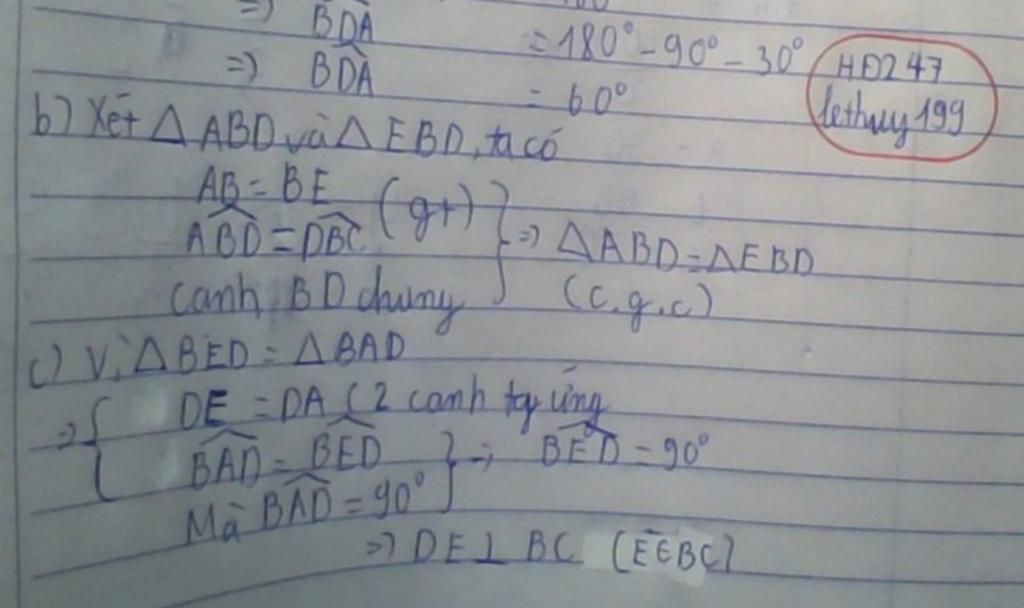 =) BDA = 180° - 90° - 30°
=) BDA = 60°
HĐ247
lethuy199
b) Xét Δ ABD và Δ EBD, ta có
AB = BE
ABD = DBC (gt)
cạnh BD chung
=) Δ ABD = Δ EBD
(c.g.c)
c) Vì Δ BED = Δ BAD
=) { DE = DA ( 2 cạnh tg ứng
BAD = BED
Mà BAD = 90°
} =) BED = 90°
=) DE ⊥ BC (E∈BC)